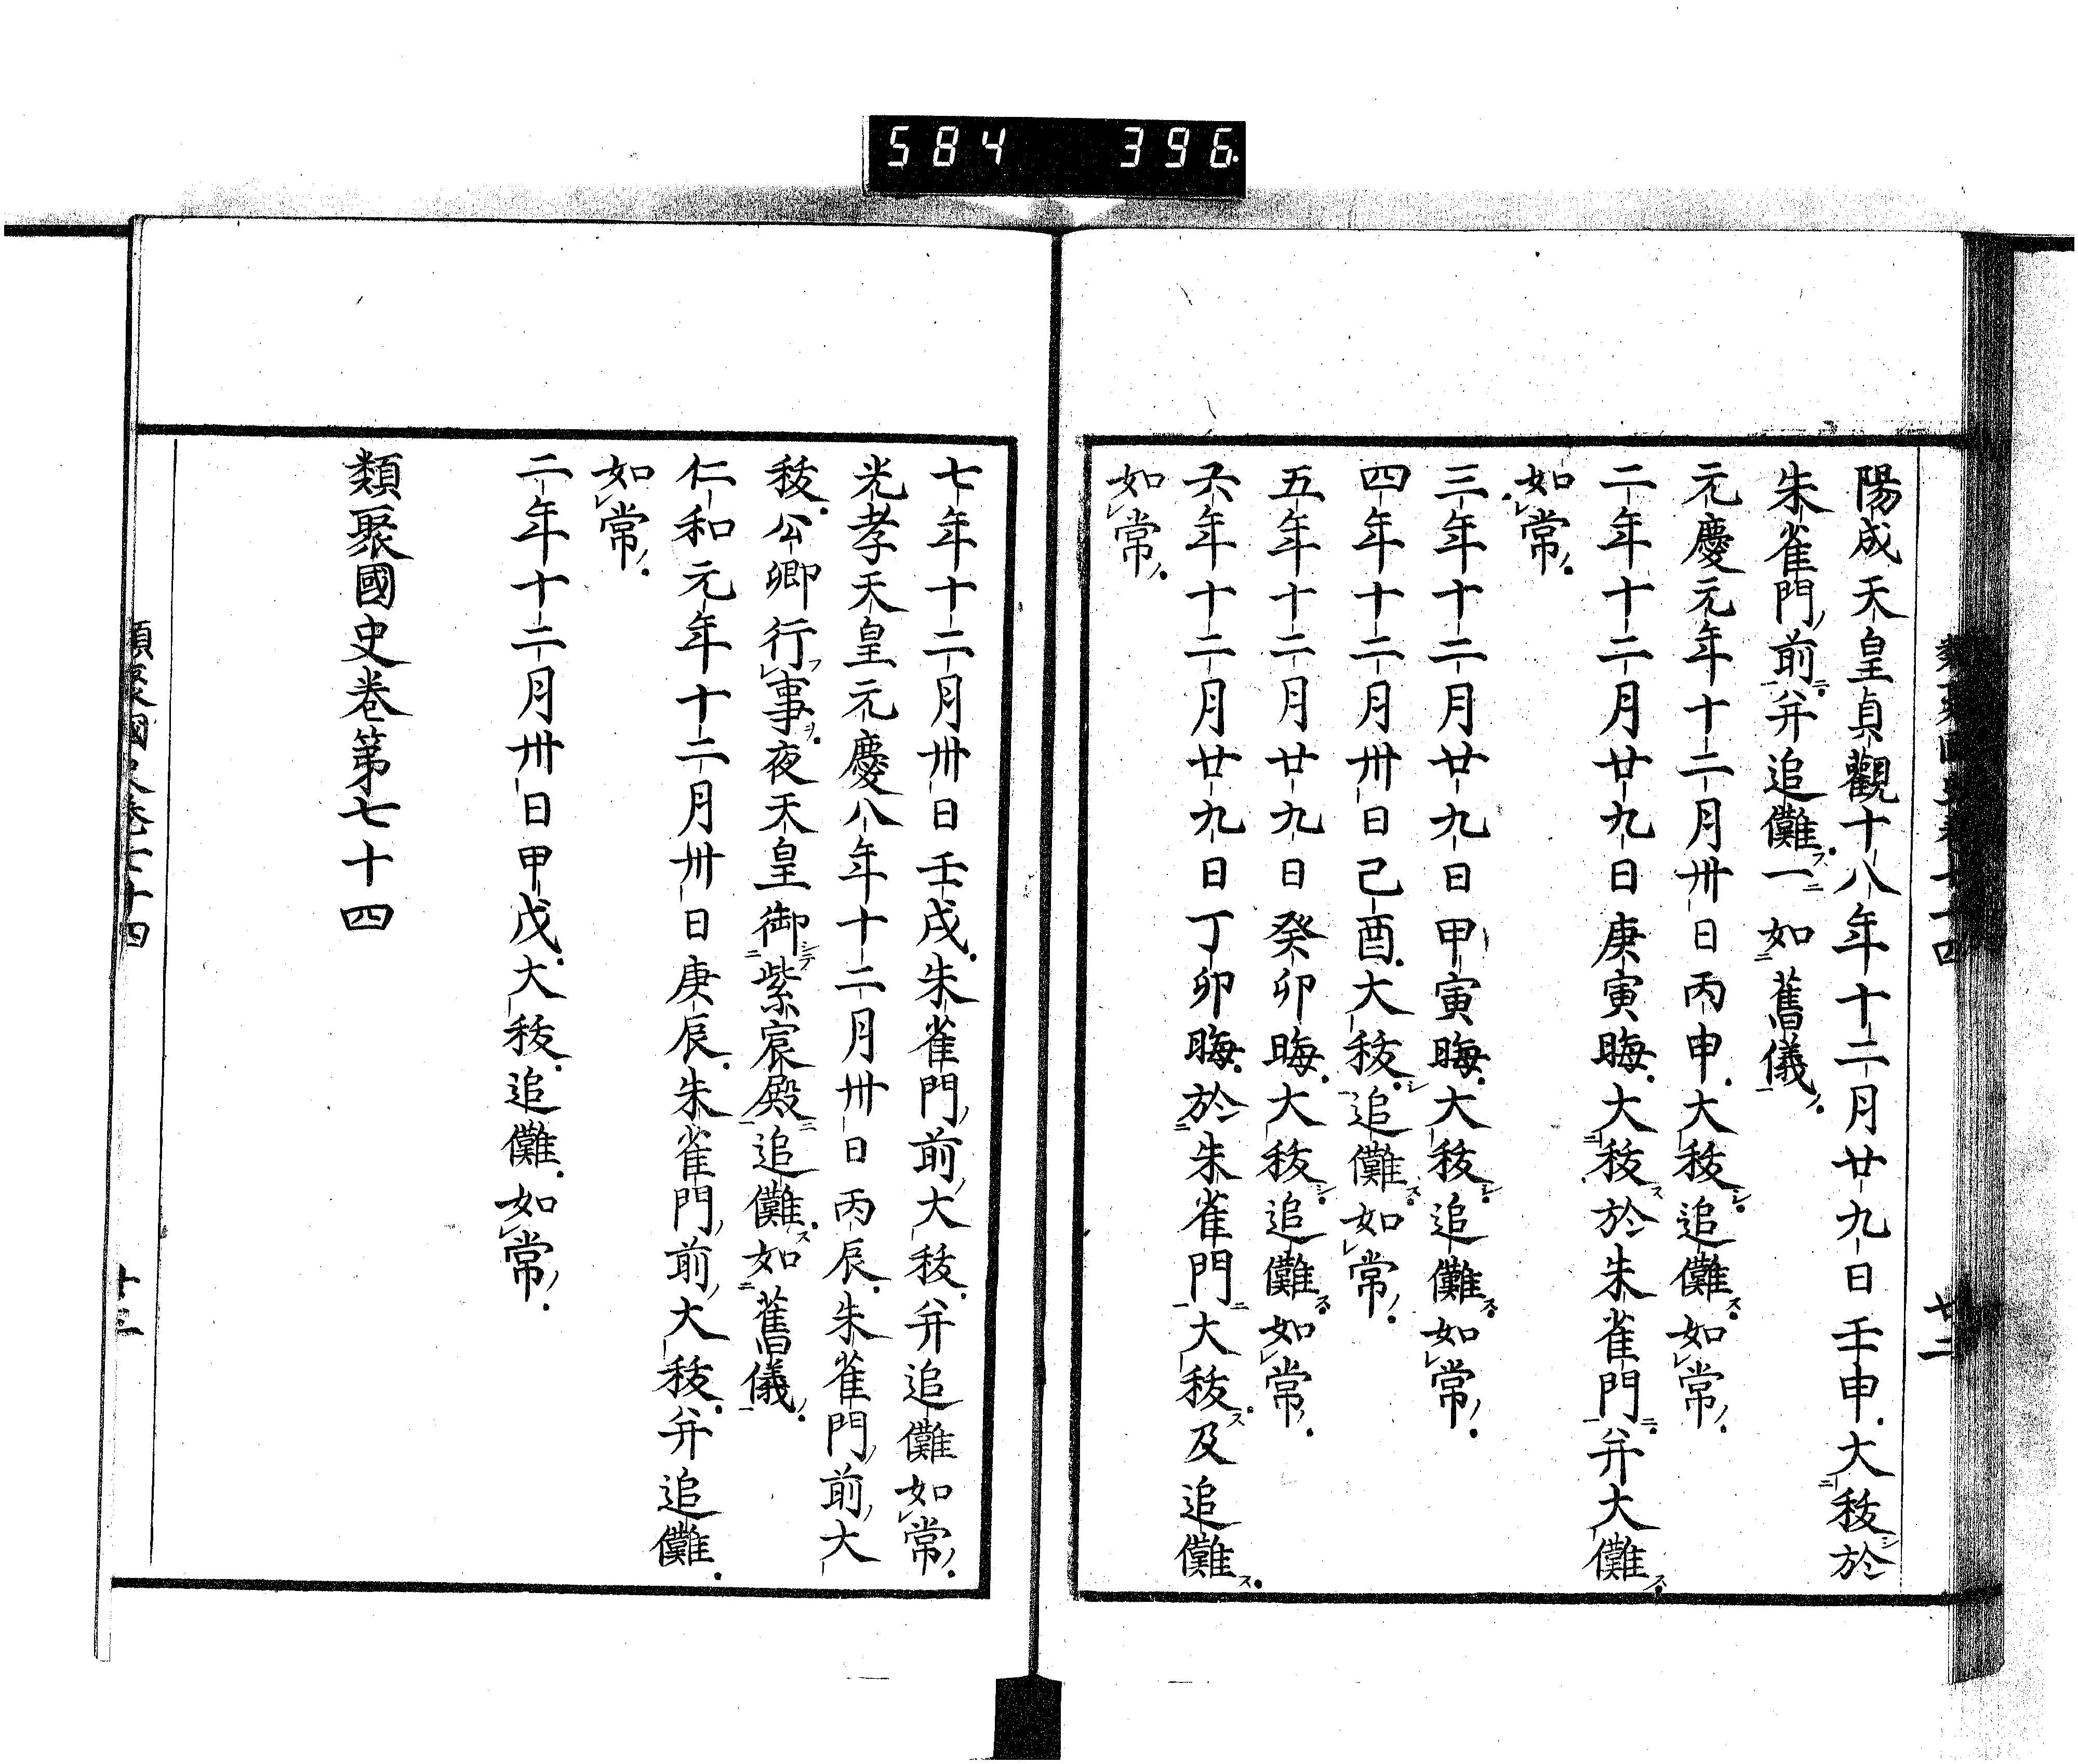 584 396
陽成天皇貞觀十八年十二月廿九日壬申大秡於
朱雀門前并追儺一如舊儀
元慶元年十二月卅日丙申大秡追儺如常
二年十二月廿九日庚寅晦大秡於朱雀門并大儺
如常
三年十二月廿九日甲寅晦大秡追儺如常
四年十二月卅日己酉大秡追儺如常
五年十二月廿九日癸卯晦大秡追儺如常
六年十二月廿九日丁卯晦於朱雀門大秡及追儺
如常
七年十二月卅日壬戌朱雀門前大秡并追儺如常
光孝天皇元慶八年十二月卅日丙辰朱雀門前大
秡公卿行事夜天皇御紫宸殿追儺如舊儀
仁和元年十二月卅日庚辰朱雀門前大秡并追儺
如常
二年十二月卅日甲戌大秡追儺如常
類聚國史卷第七十四